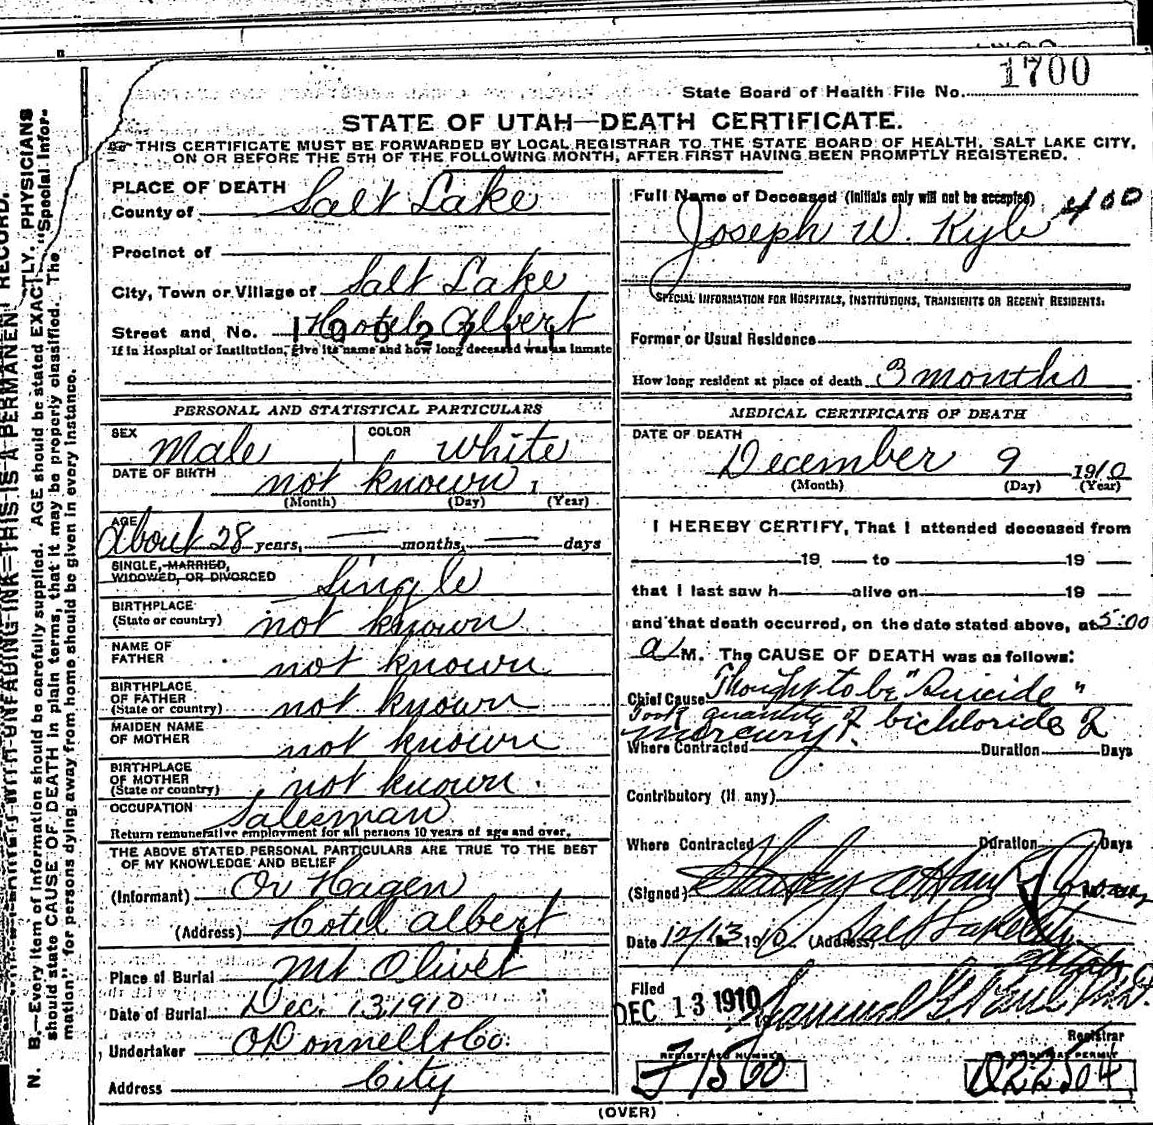 1700
State Board of Health File No.
STATE OF UTAH—DEATH CERTIFICATE.
THIS CERTIFICATE MUST BE FORWARDED BY LOCAL REGISTRAR TO THE STATE BOARD OF HEALTH, SALT LAKE CITY,
ON OR BEFORE THE 5TH OF THE FOLLOWING MONTH, AFTER FIRST HAVING BEEN PROMPTLY REGISTERED.
PLACE OF DEATH
County of Salt Lake
Precinct of
City, Town or Village of Salt Lake
Street and No. Hotel Albert
If in Hospital or Institution, give its name and how long deceased was an inmate
PERSONAL AND STATISTICAL PARTICULARS
SEX Male COLOR White
DATE OF BIRTH not known
(Month) (Day) (Year)
AGE About 28 years, — months, — days
SINGLE, MARRIED,
WIDOWED, OR DIVORCED Single
BIRTHPLACE
(State or country) not known
NAME OF
FATHER not known
BIRTHPLACE
OF FATHER
(State or country) not known
MAIDEN NAME
OF MOTHER not known
BIRTHPLACE
OF MOTHER
(State or country) not known.
OCCUPATION Salesman
Return remunerative employment for all persons 10 years of age and over.
THE ABOVE STATED PERSONAL PARTICULARS ARE TRUE TO THE BEST
OF MY KNOWLEDGE AND BELIEF
(Informant) Ov Hagen
(Address) Hotel Albert
Place of Burial Mt Olivet
Date of Burial Dec. 13, 1910
Undertaker O'Donnell & Co.
Address City
Full Name of Deceased (Initials only will not be accepted) 400
Joseph W. Kyle
SPECIAL INFORMATION FOR HOSPITALS, INSTITUTIONS, TRANSIENTS OR RECENT RESIDENTS:
Former or Usual Residence
How long resident at place of death 3 months
MEDICAL CERTIFICATE OF DEATH
DATE OF DEATH
December 9 1910
(Month) (Day) (Year)
I HEREBY CERTIFY, That I attended deceased from
19 — to 19
that I last saw h alive on 19
and that death occurred, on the date stated above, at 5:00
a M. The CAUSE OF DEATH was as follows:
Chief Cause Thought to be "Suicide"
Took quantity of bichloride of
mercury.
Where Contracted Duration Days
Contributory (if any)
Where Contracted Duration Days
(Signed)
Date 12/13 1910 (Address) Salt Lake City
Utah
Filed
DEC 13 1910 Samuel G. Paul M.D.
Registrar
REGISTERED NUMBER
F1560
PERMIT
D22504
(OVER)
N. B.—Every item of information should be carefully supplied. AGE should be stated EXACTLY. PHYSICIANS
should state CAUSE OF DEATH in plain terms, that it may be properly classified. The "Special Infor-
mation" for persons dying away from home should be given in every instance.
UNFADING INK—THIS IS A PERMANENT RECORD.